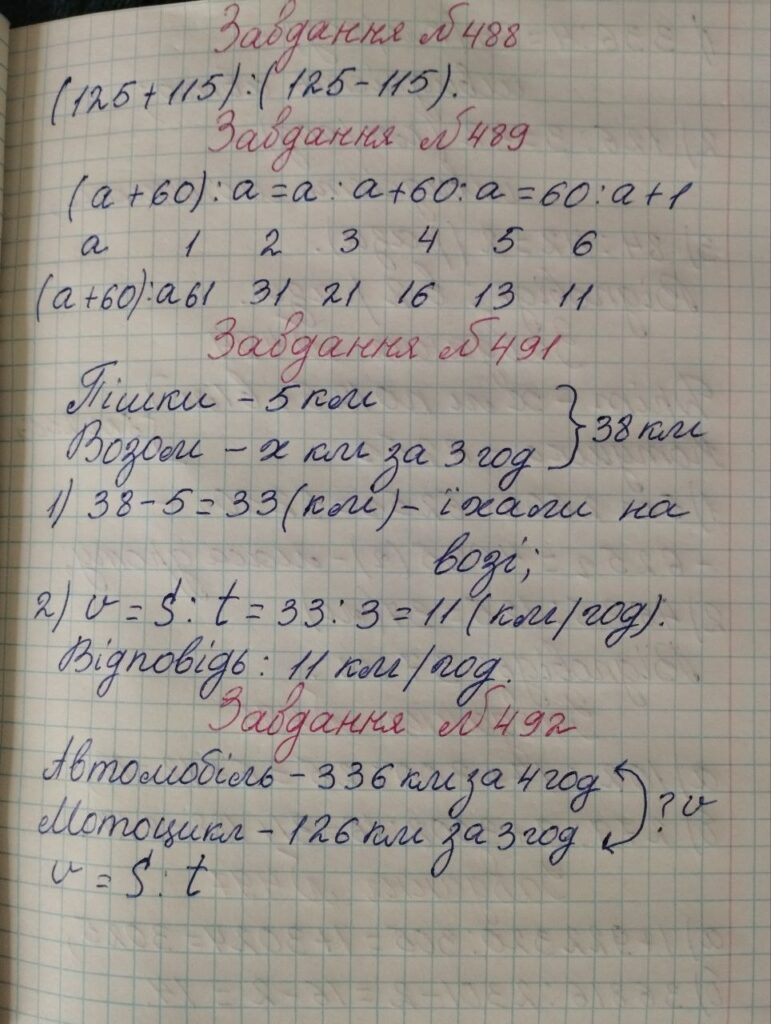 Завдання №488
(125+115):(125-115).
Завдання №489
(a+60):a=a:a+60:a=60:a+1
a 1 2 3 4 5 6
(a+60):a 61 31 21 16 13 11
Завдання №491
Пішки - 5 км
Возом - x км за 3 год } 38 км
1) 38-5=33(км)- їхали на
возі;
2) v=S:t=33:3=11(км/год).
Відповідь: 11 км/год.
Завдання №492
Автомобіль - 336 км за 4 год
Мотоцикл - 126 км за 3 год ? v
v=S:t